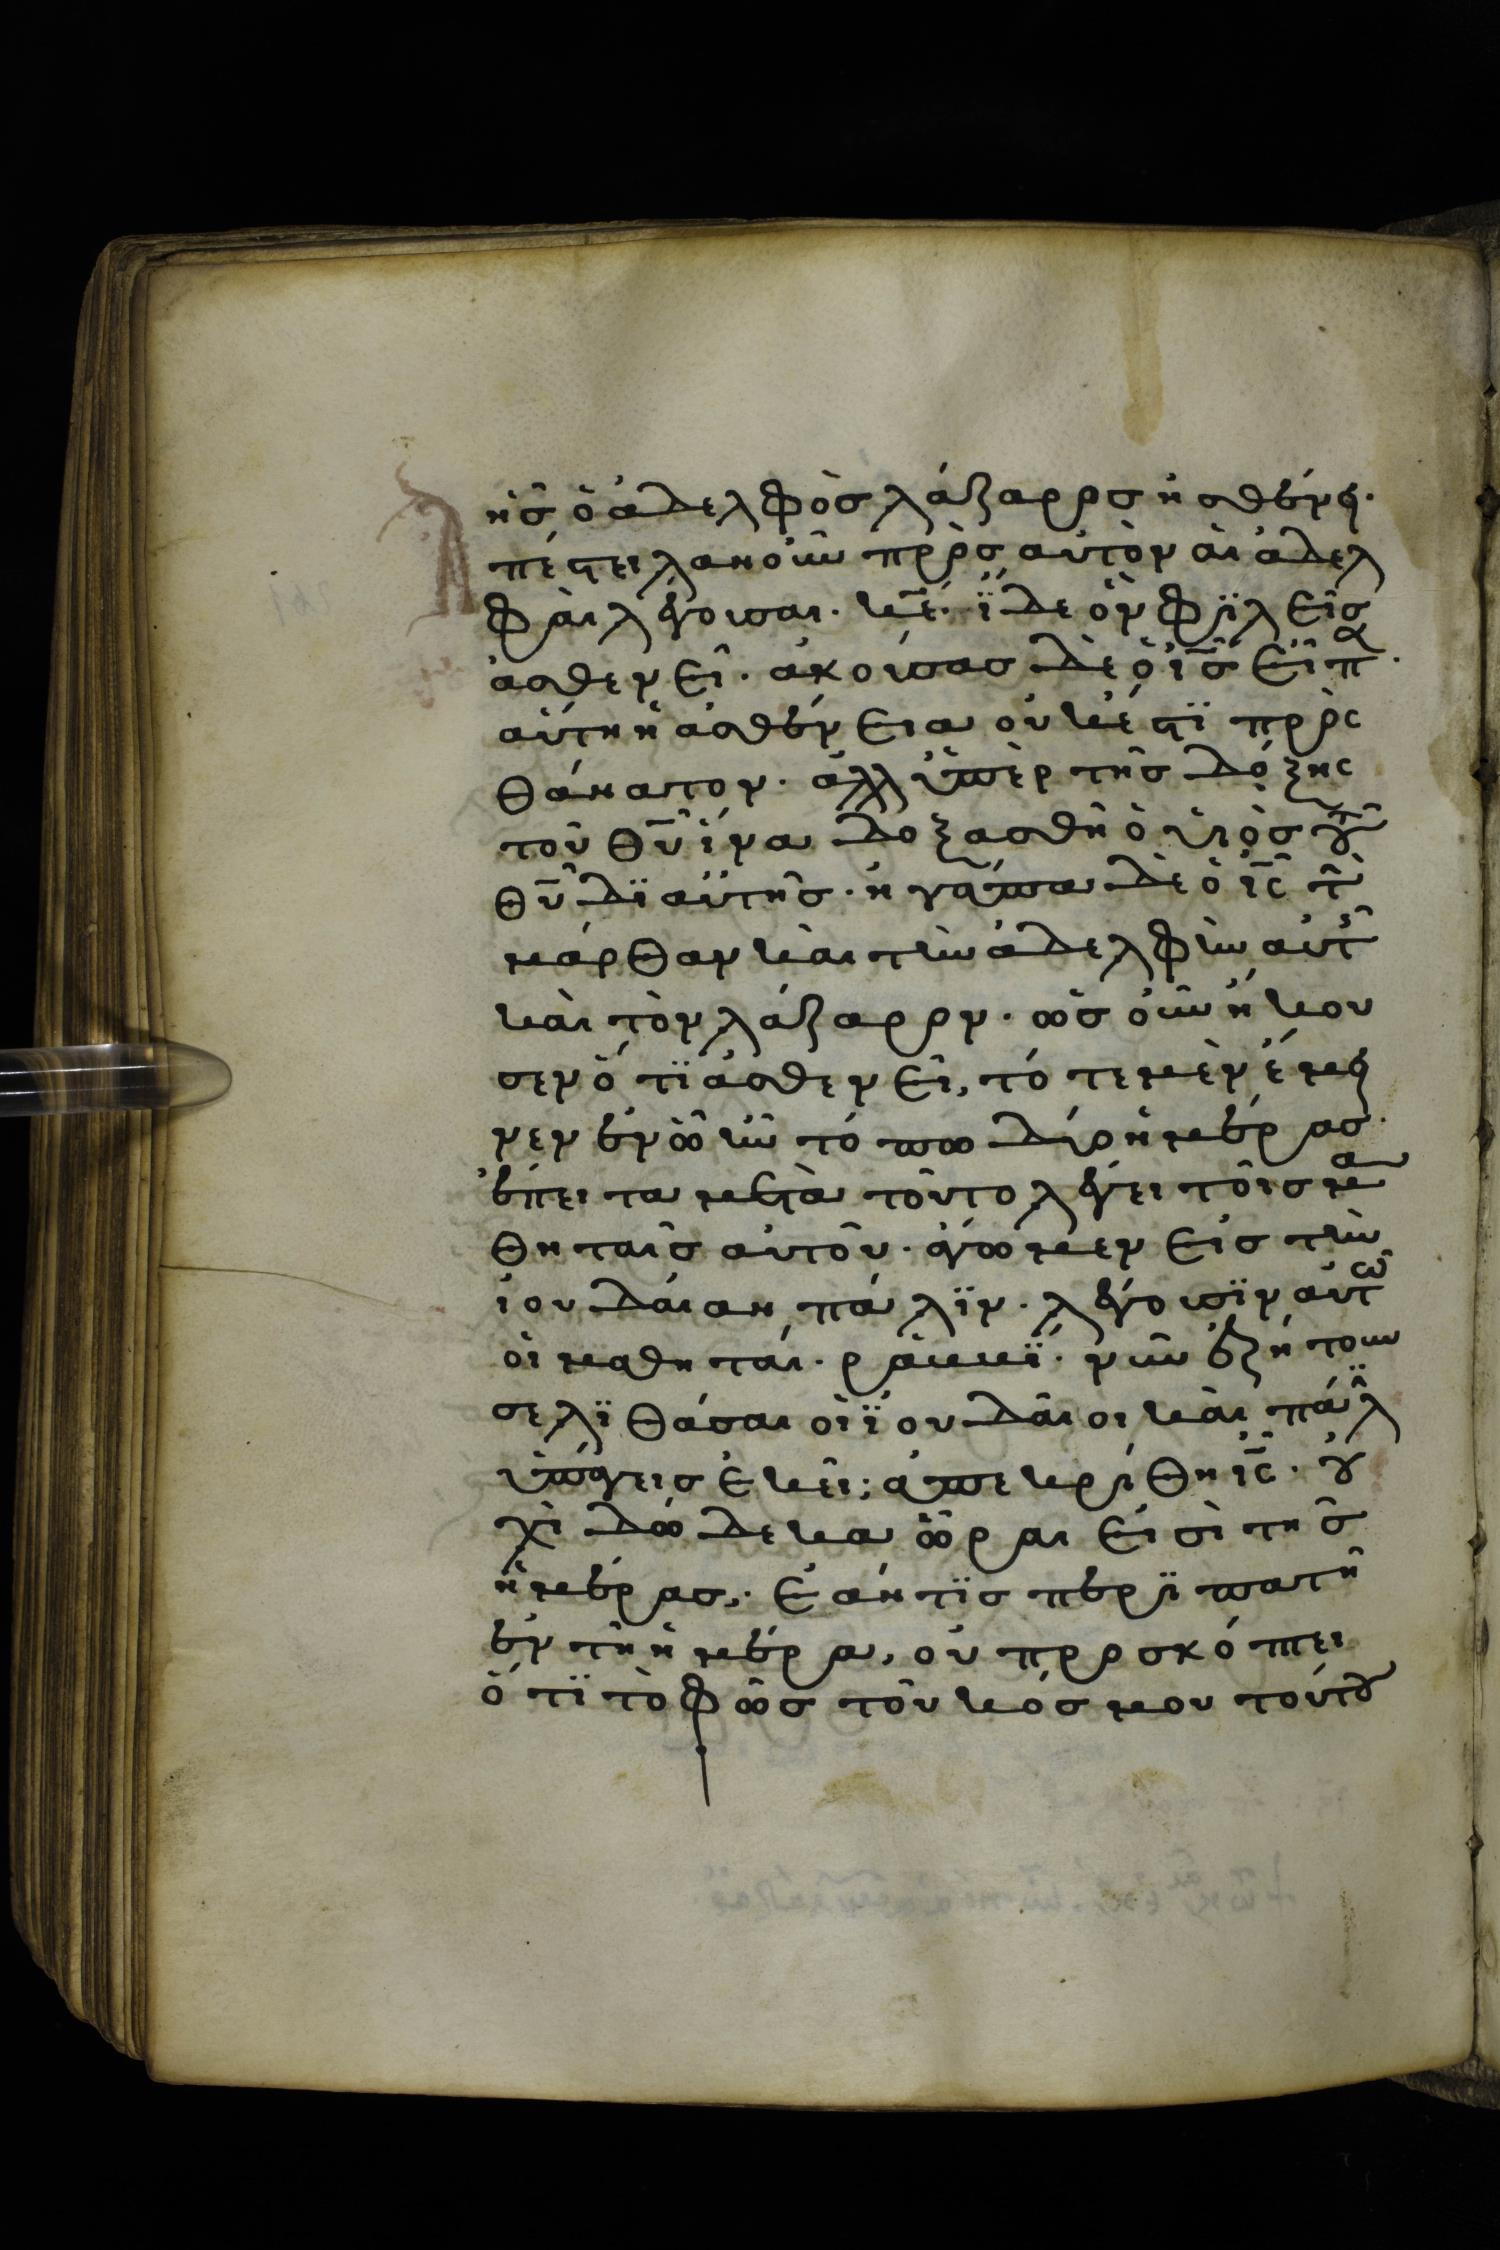 ἧς ὁ ἀδελφὸς λάζαρος ἠσθένει·
Ἀπέστειλαν οὖν πρὸς αὐτὸν αἱ ἀδελ
φαὶ λέγουσαι· κ̅ε̅· ἴδε ὃν φιλεῖς
ἀσθενεῖ· ἀκούσας δὲ ὁ ι̅ς̅ εἶπ·
αὕτη ἡ ἀσθένεια οὐκ ἔστι πρὸς
θάνατον· ἀλλ ὑπὲρ τῆς δόξης
τοῦ θ̅υ̅ ἵνα δοξασθῆ ὁ υἱὸς τοῦ
θ̅υ̅ δι αὐτῆς· ἠγάπα δὲ ὁ ι̅ς̅ τὴν
μάρθαν καὶ τὴν ἀδελφὴν αὐτῆς
καὶ τὸν λάζαρον· ὡς οὖν ἤκου
σεν ὅτι ἀσθενεῖ, τότε μὲν ἔμει
νεν ἐν ὧ ἦν τόπω δύο ἡμέρας·
ἔπειτα μετὰ τοῦτο λέγει τοῖς μα
θηταῖς αὐτοῦ· ἄγωμεν εἰς τὴν
ἰουδαίαν πάλιν· λέγουσιν αὐτῶ
οἱ μαθηταί· ραββί· νῦν ἐζήτουν
σε λιθάσαι οἱ ἰουδαῖοι καὶ πάλιν
ὑπάγεις ἐκεῖ; ἀπεκρίθη ι̅ς̅· οὐ
χὶ δώδεκα ὧραι εἰσὶ τῆς
ἡμέρας,· ἐάν τις περιπατῆ
ἐν τῆ ἡμέρα, οὐ προσκόπτει
ὅτι τὸ φῶς τοῦ κόσμου τούτου